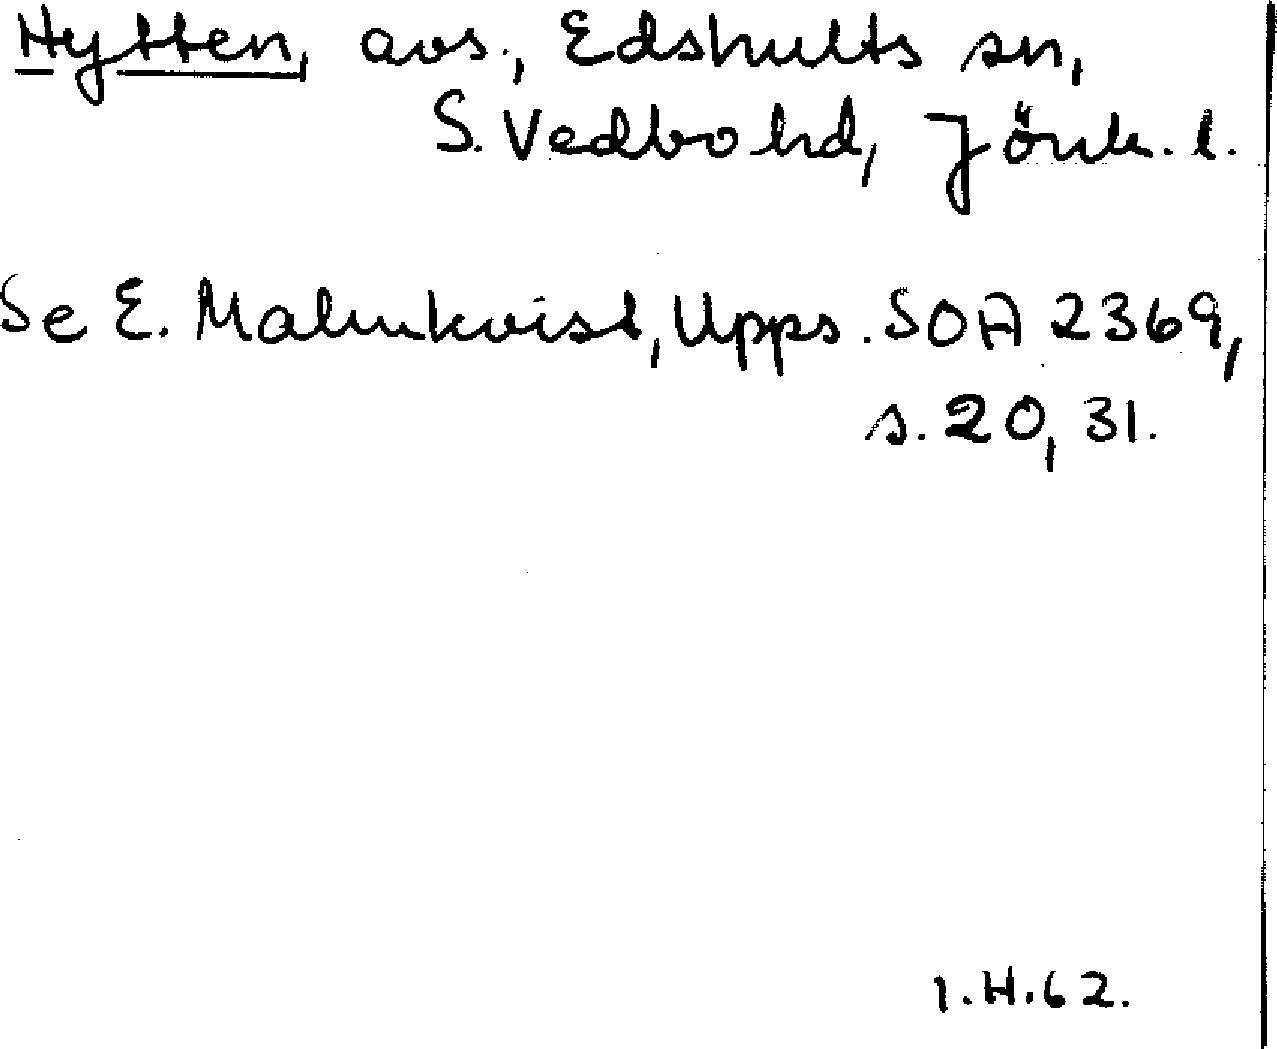 Hytten, avs., Edshults sn,
S. Vedbo hd, Jönk. l.
Se E. Malmkvist, Upps. SOA 2369,
s. 20, 31.
1.H.62.